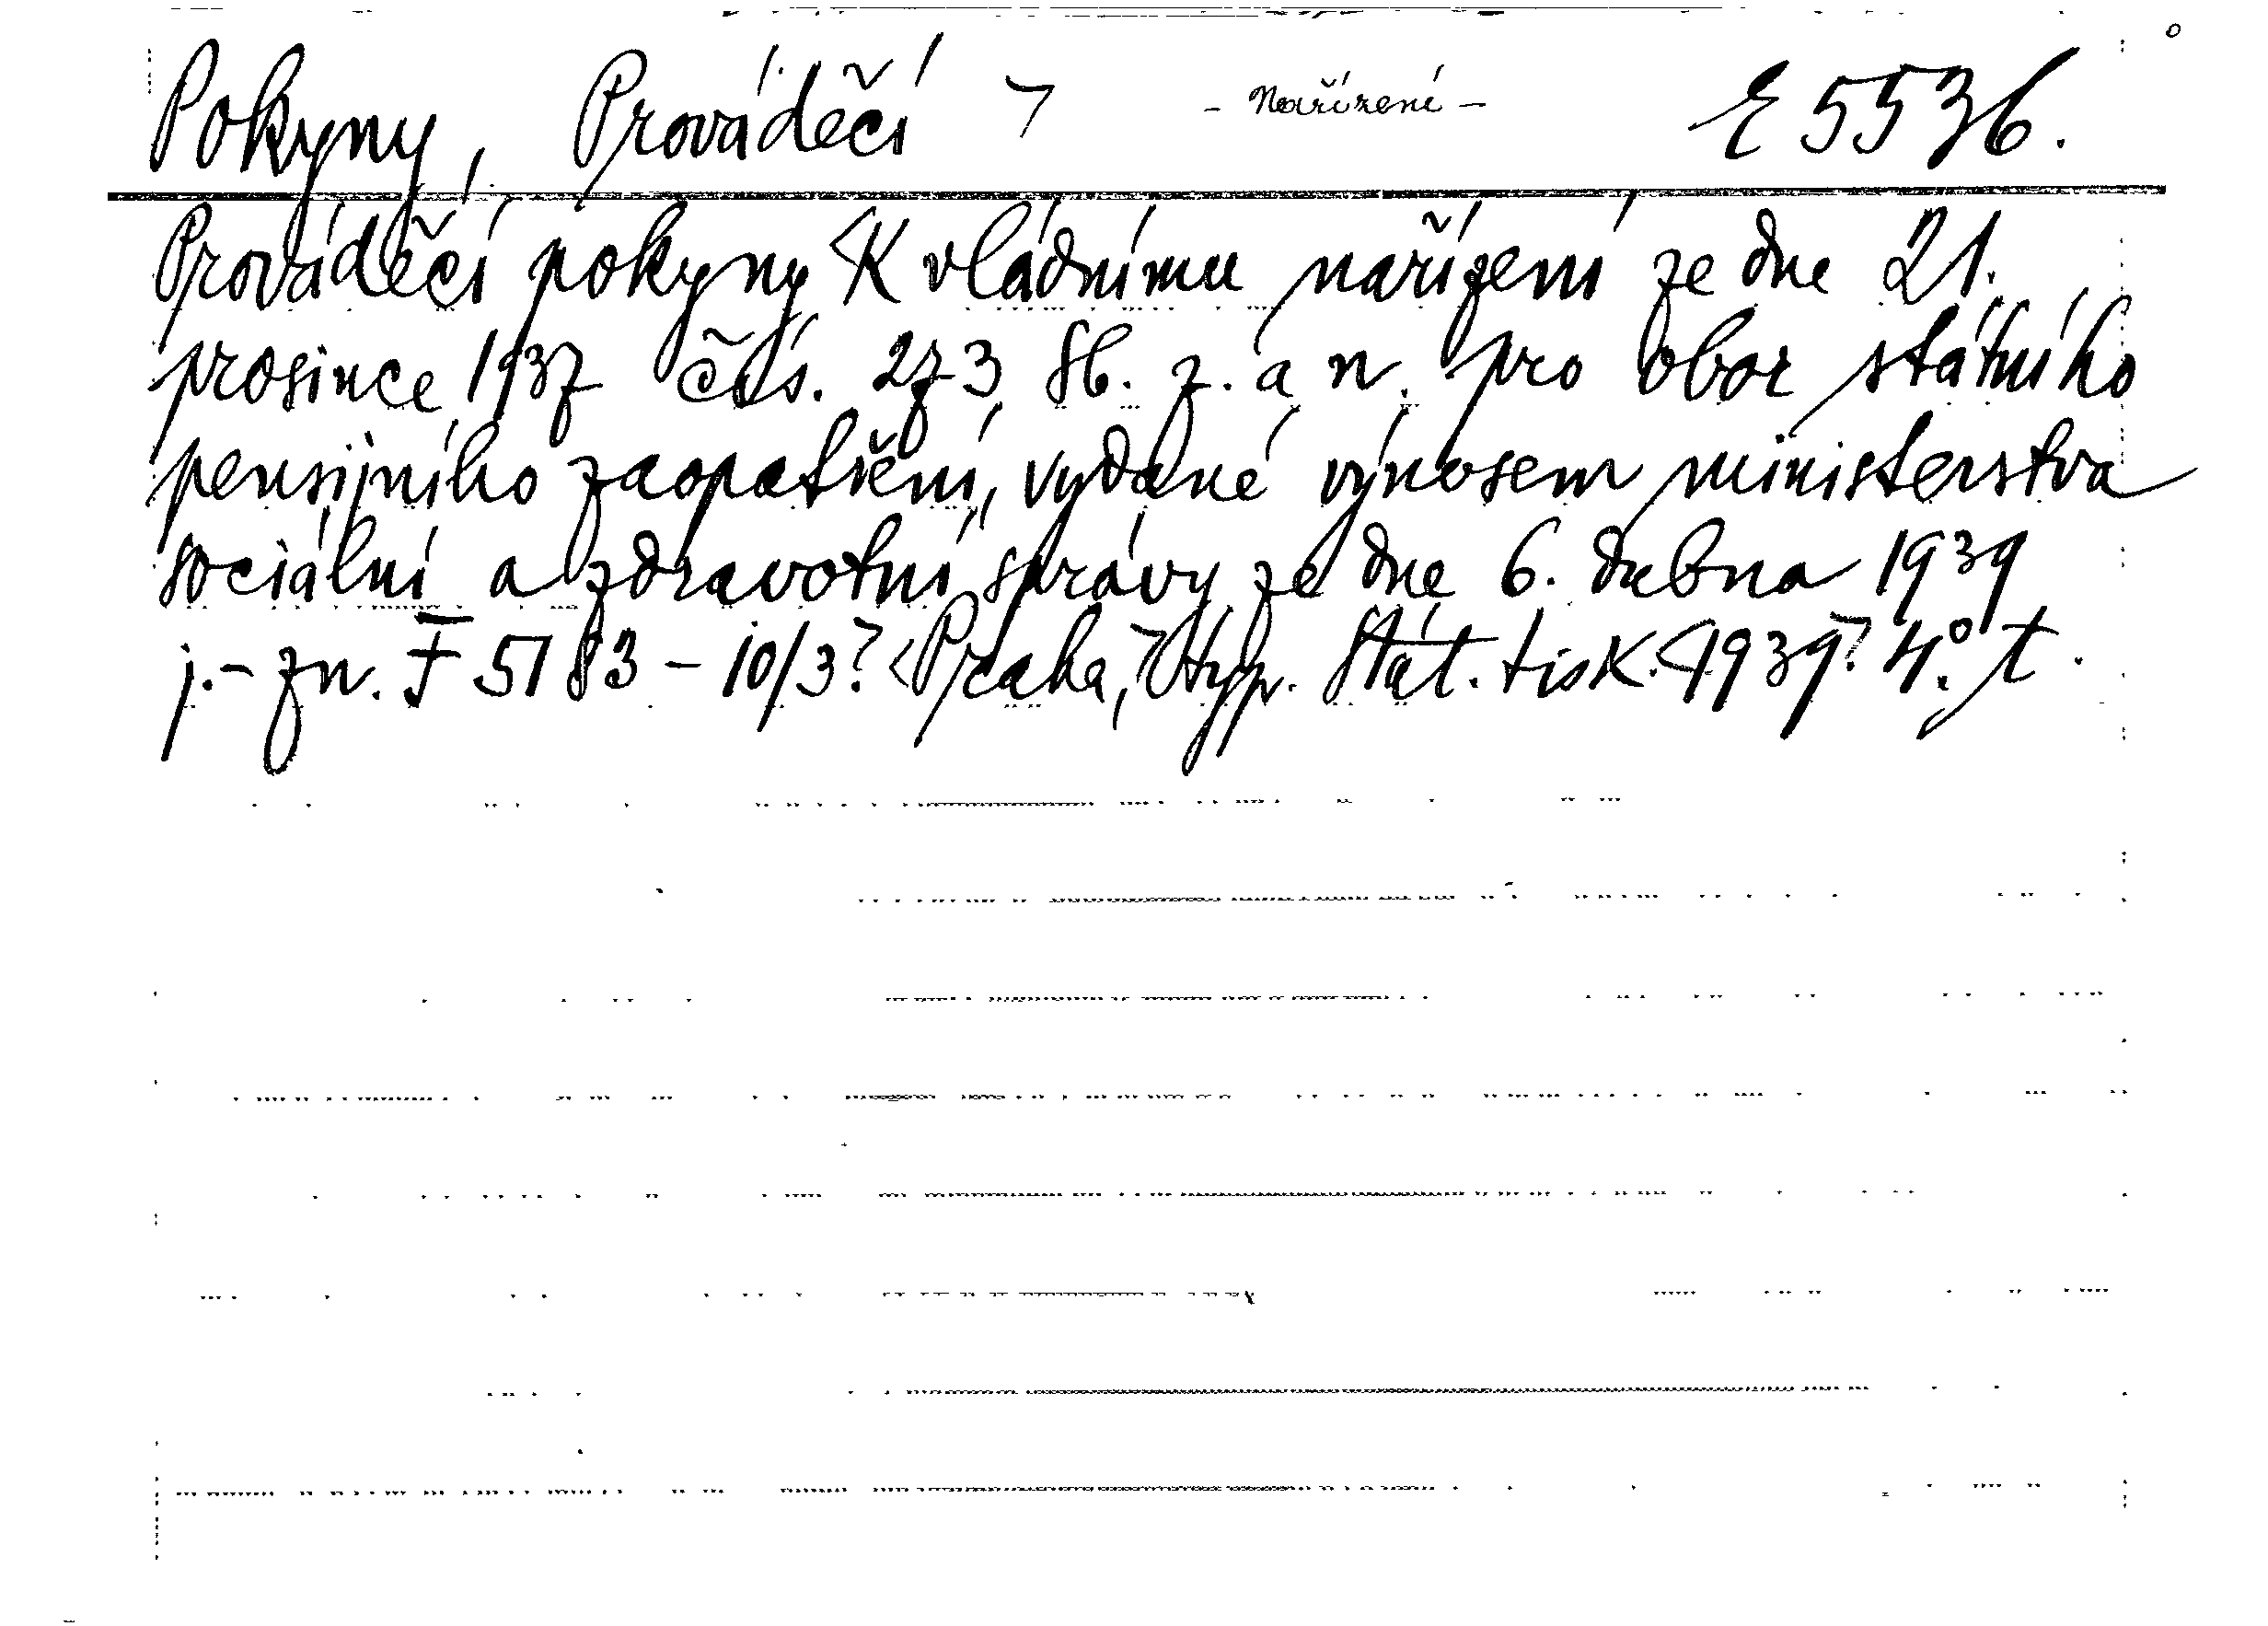 Pokyny, Prováděčí > - Nařízení - E 5536.
Prováděčí pokyny <K vládnímu nařízení ze dne 21.
prosince 1937 čís. 273 Sb. z. a n. pro obor státního
pensijního zaopatření, vydané výnosem ministerstva
sociální a zdravotní správy ze dne 6. dubna 1939
j.- zn. F 5183 - 10/3> <Praha,> typ. Stát. tisk. <1939> 4° t.